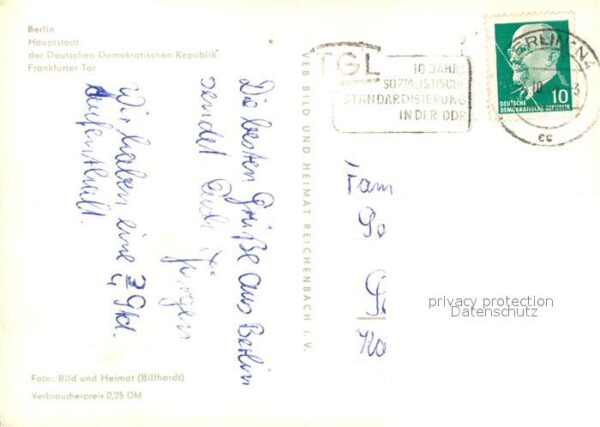 Berlin
Hauptstadt
der Deutschen Demokratischen Republik
Frankfurter Tor
Die besten Grüße aus Berlin
sendet Euch
Wir haben eine
Std.
Aufenthalt.
VEB BILD UND HEIMAT REICHENBACH i. V.
TGL
10 JAHRE
SOZIALISTISCHE
STANDARDISIERUNG
IN DER DDR
BERLIN N4
DEUTSCHE
DEMOKRATISCHE REPUBLIK
10
cc
Fam
privacy protection
Datenschutz
Foto: Bild und Heimat (Billhardt)
Verbraucherpreis 0,25 DM